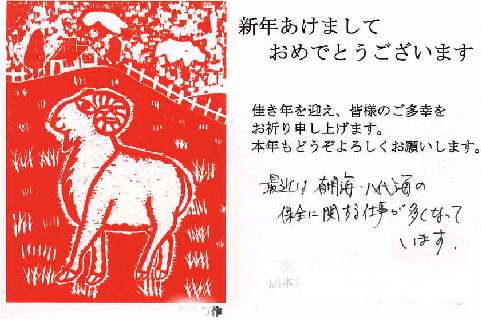 新年あけまして
おめでとうございます
佳き年を迎え、皆様のご多幸を
お祈り申し上げます。
本年もどうぞよろしくお願いします。
最近は有明海・八代海の
保全に関する仕事が多くなって
います.
作